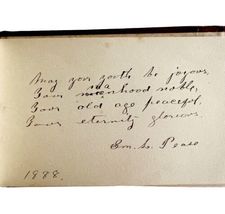 May your youth be joyous,
Your manhood noble,
Your old age peaceful,
Your eternity glorious.
Pease
1888.